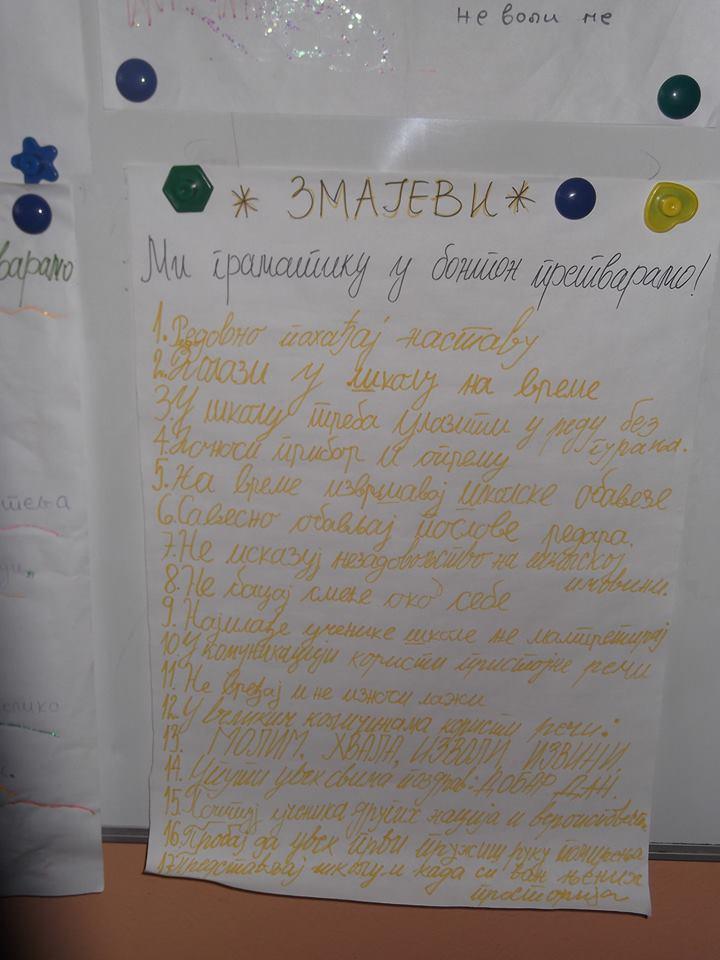 не воли не
варамо
* ЗМАЈЕВИ *
Ми граматику у бонтон претварамо!
1. Редовно похађај наставу
2. Долази у школу на време
3. У школу треба улазити у реду без
гурања.
4. Доноси прибор и опрему
5. На време извршавај школске обавезе
6. Савесно обављај послове редара.
7. Не исказуј незадовољство на школској
имовини.
8. Не бацај смеће око себе
9. Најмлађе ученике школе не малтретирај
10. У комуникацији користи пристојне речи
11. Не вређај и не износи лажи
12. У великим количинама користи речи:
13. МОЛИМ, ХВАЛА, ИЗВОЛИ, ИЗВИНИ
14. Упути увек свима поздрав: ДОБАР ДАН.
15. Поштуј ученика других нација и вероисповести
16. Пробај да увек први пружиш руку помирења
17. Представљај школу и када си ван њених
просторија
елико